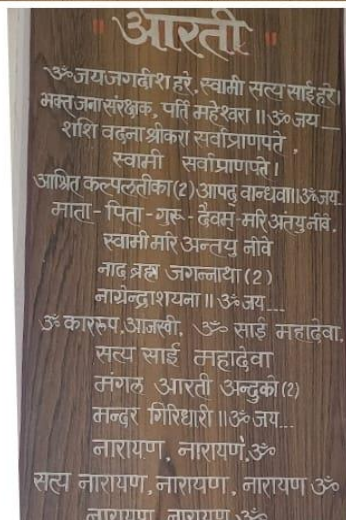 "आरती"
ॐ जय जगदीश हरे, स्वामी सत्य साई हरे।
भक्त जना संरक्षक, पर्ति महेश्वरा ॥ ॐ जय__
शशि वदना श्रीकरा सर्वाप्राणपते,
स्वामी सर्वाप्राणपते।
आश्रित कल्पलतीका (2) आपद् वान्धवा॥ॐ जय..
माता - पिता - गुरू - दैवम् - मरि अंतयु नीवे,
स्वामी मरि अन्तयु नीवे
नाद ब्रह्म जगन्नाथा (2)
नागेन्द्राशयना ॥ ॐ जय....
ॐ काररूप, आजस्वी, ॐ साई महादेवा,
सत्य साई महादेवा
मंगल आरती अन्दुको (2)
मन्दर गिरिधारी ॥ॐ जय...
नारायण, नारायणं, ॐ
सत्य नारायण, नारायण, नारायण ॐ
नारायण, नारायण, ॐ